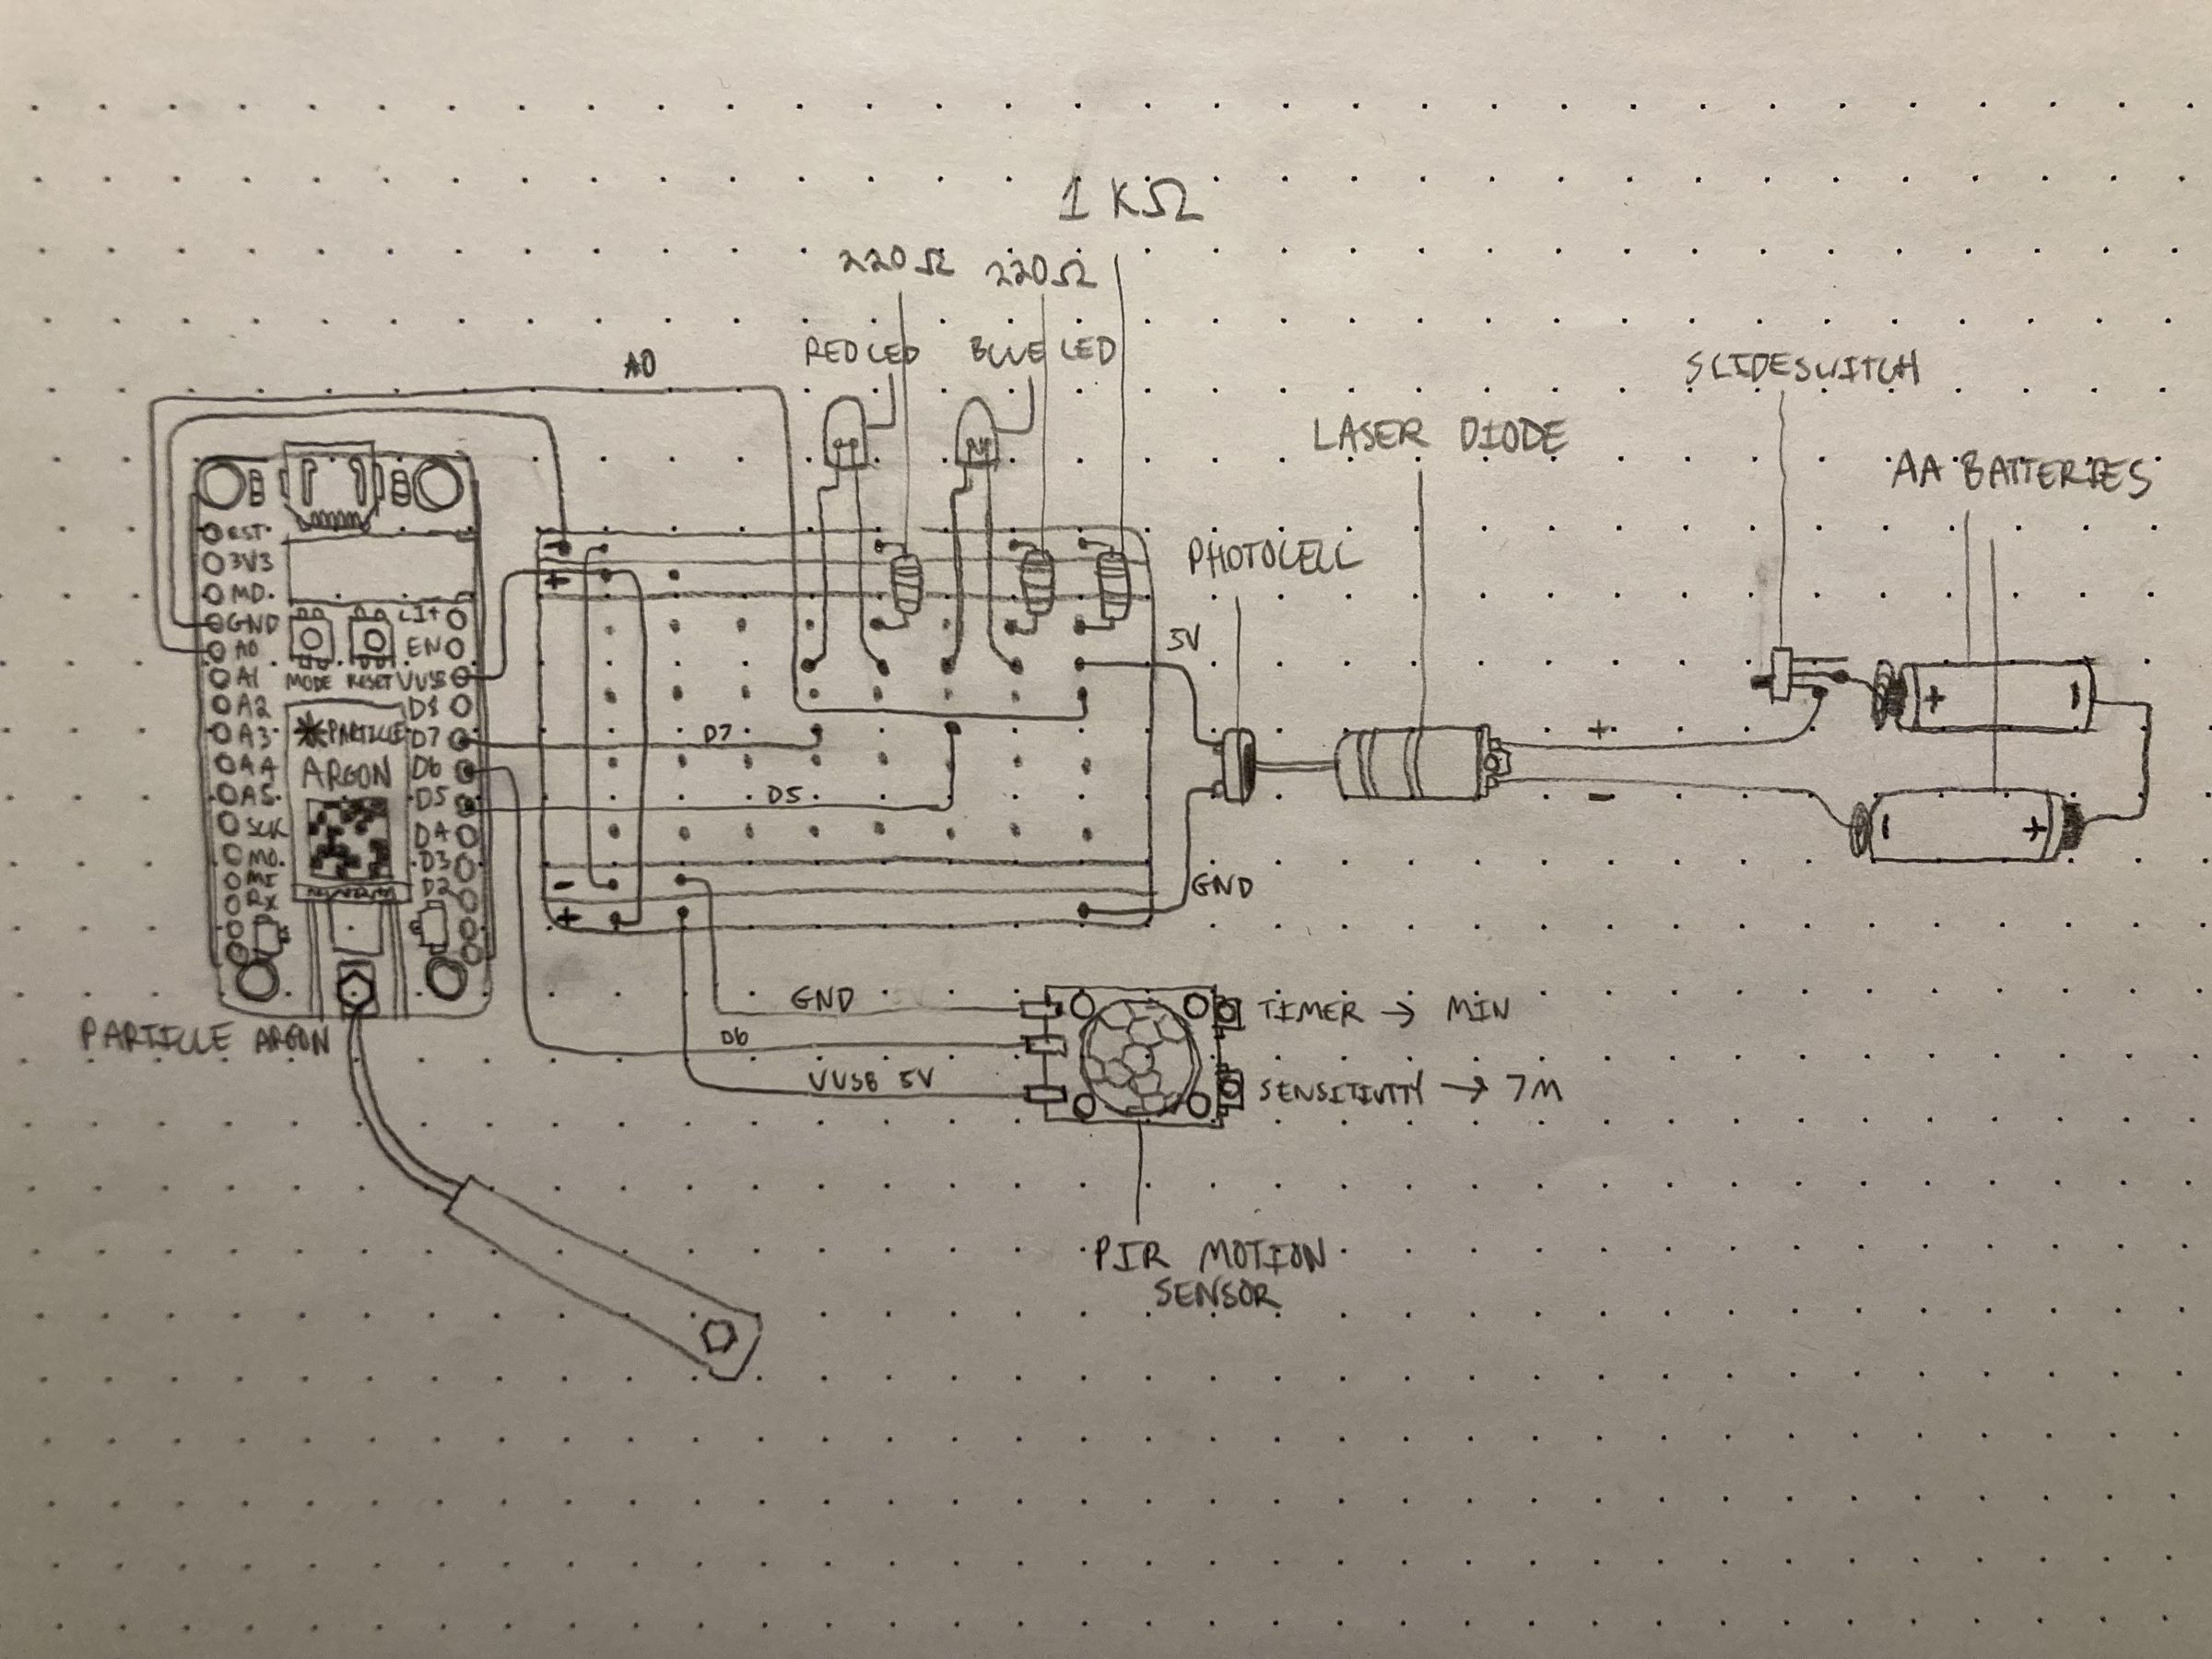 1 KΩ
220Ω
220Ω
RED LED
BLUE LED
A0
SLIDESWITCH
LASER DIODE
AA BATTERIES
PHOTOCELL
RST
3V3
MD
GND
A0
A1
A2
A3
A4
A5
SCK
MO
MI
RX
LI+
EN
VUSB
D8
D7
D6
D5
D4
D3
D2
MODE RESET
PARTICLE
ARGON
-
+
5V
D7
D5
+
-
+
-
-
+
-
+
GND
GND
D6
VUSB 5V
TIMER → MIN
SENSITIVITY → 7M
PARTICLE ARGON
PIR MOTION
SENSOR